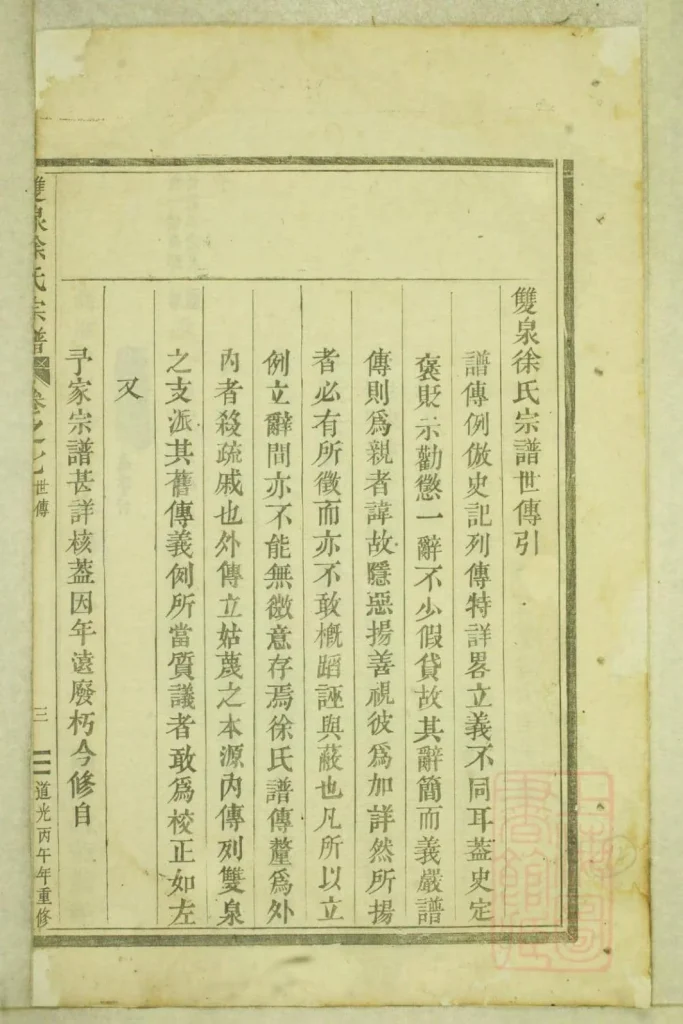 雙泉徐氏宗譜世傳引
譜傳例倣史記列傳特詳畧立義不同耳葢史定
褒貶示勸懲一辭不少假貸故其辭簡而義嚴譜
傳則爲親者諱故隱惡揚善視彼爲加詳然所揚
者必有所徵而亦不敢槪蹈誣與蔽也凡所以立
例立辭間亦不能無微意存焉徐氏譜傳釐爲外
內者殺疏戚也外傳立姑蔑之本源內傳列雙泉
之支派其舊傳義例所當質議者敢爲校正如左
又
予家宗譜甚詳核葢因年遠廢朽今修自
雙泉徐氏宗譜 卷之七 世傳 三 道光丙午年重修